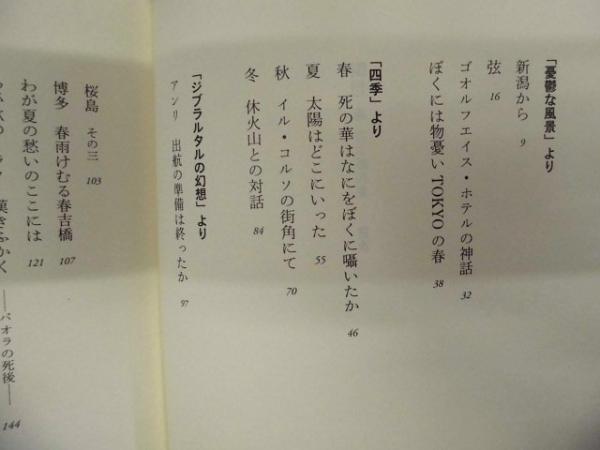 「憂鬱な風景」より
新潟から 9
弦 16
ゴオルフエイス・ホテルの神話 32
ぼくには物憂いTOKYOの春 38
「四季」より
春 死の華はなにをぼくに囁いたか 46
夏 太陽はどこにいった 55
秋 イル・コルソの街角にて 70
冬 休火山との対話 84
「ジブラルタルの幻想」より
アンリ 出航の準備は終ったか 97
桜島 その三 103
博多 春雨けむる春吉橋 107
わが夏の愁いのここには 121
葉さふかく ――パオラの死後―― 144